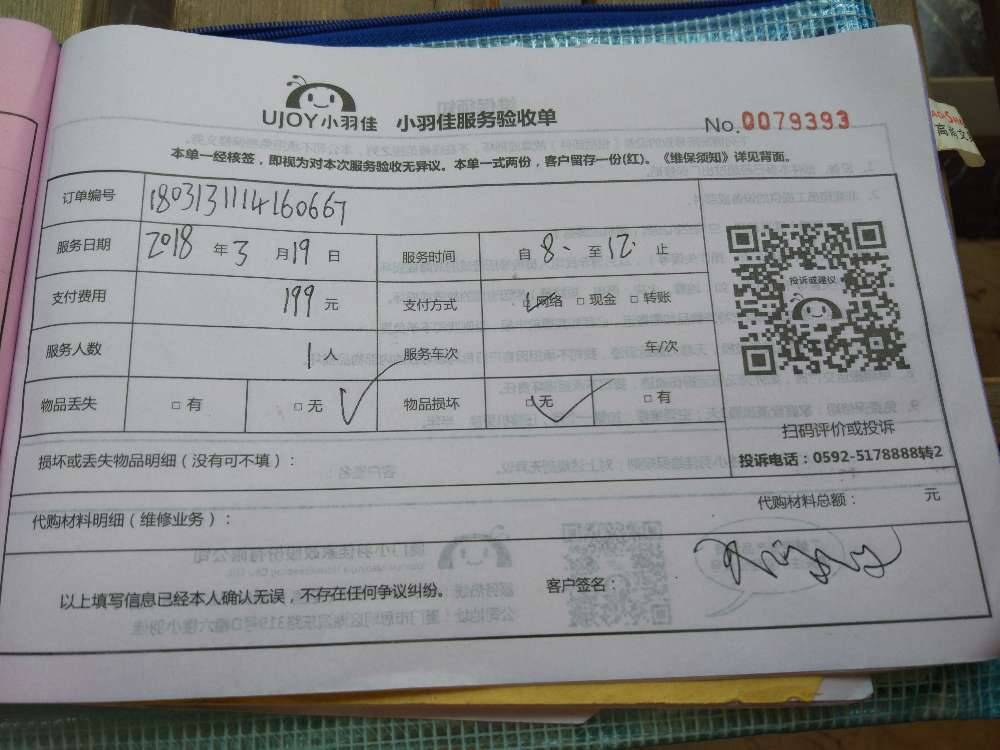 UJOY小羽佳 小羽佳服务验收单 No.0079393
本单一经核签，即视为对本次服务验收无异议。本单一式两份，客户留存一份(红)。《维保须知》详见背面。
订单编号 1803131114160667
服务日期 2018 年 3 月 19 日 服务时间 自 8. 至 12. 止
支付费用 199 元 支付方式 □ 网络 □ 现金 □ 转账
服务人数 1人 服务车次 车/次
物品丢失 □ 有 □ 无 物品损坏 □ 无 □ 有
投诉或建议
扫码评价或投诉
投诉电话：0592-5178888转2
损坏或丢失物品明细（没有可不填）：
代购材料明细（维修业务）： 代购材料总额： 元
以上填写信息已经本人确认无误，不存在任何争议纠纷。 客户签名：